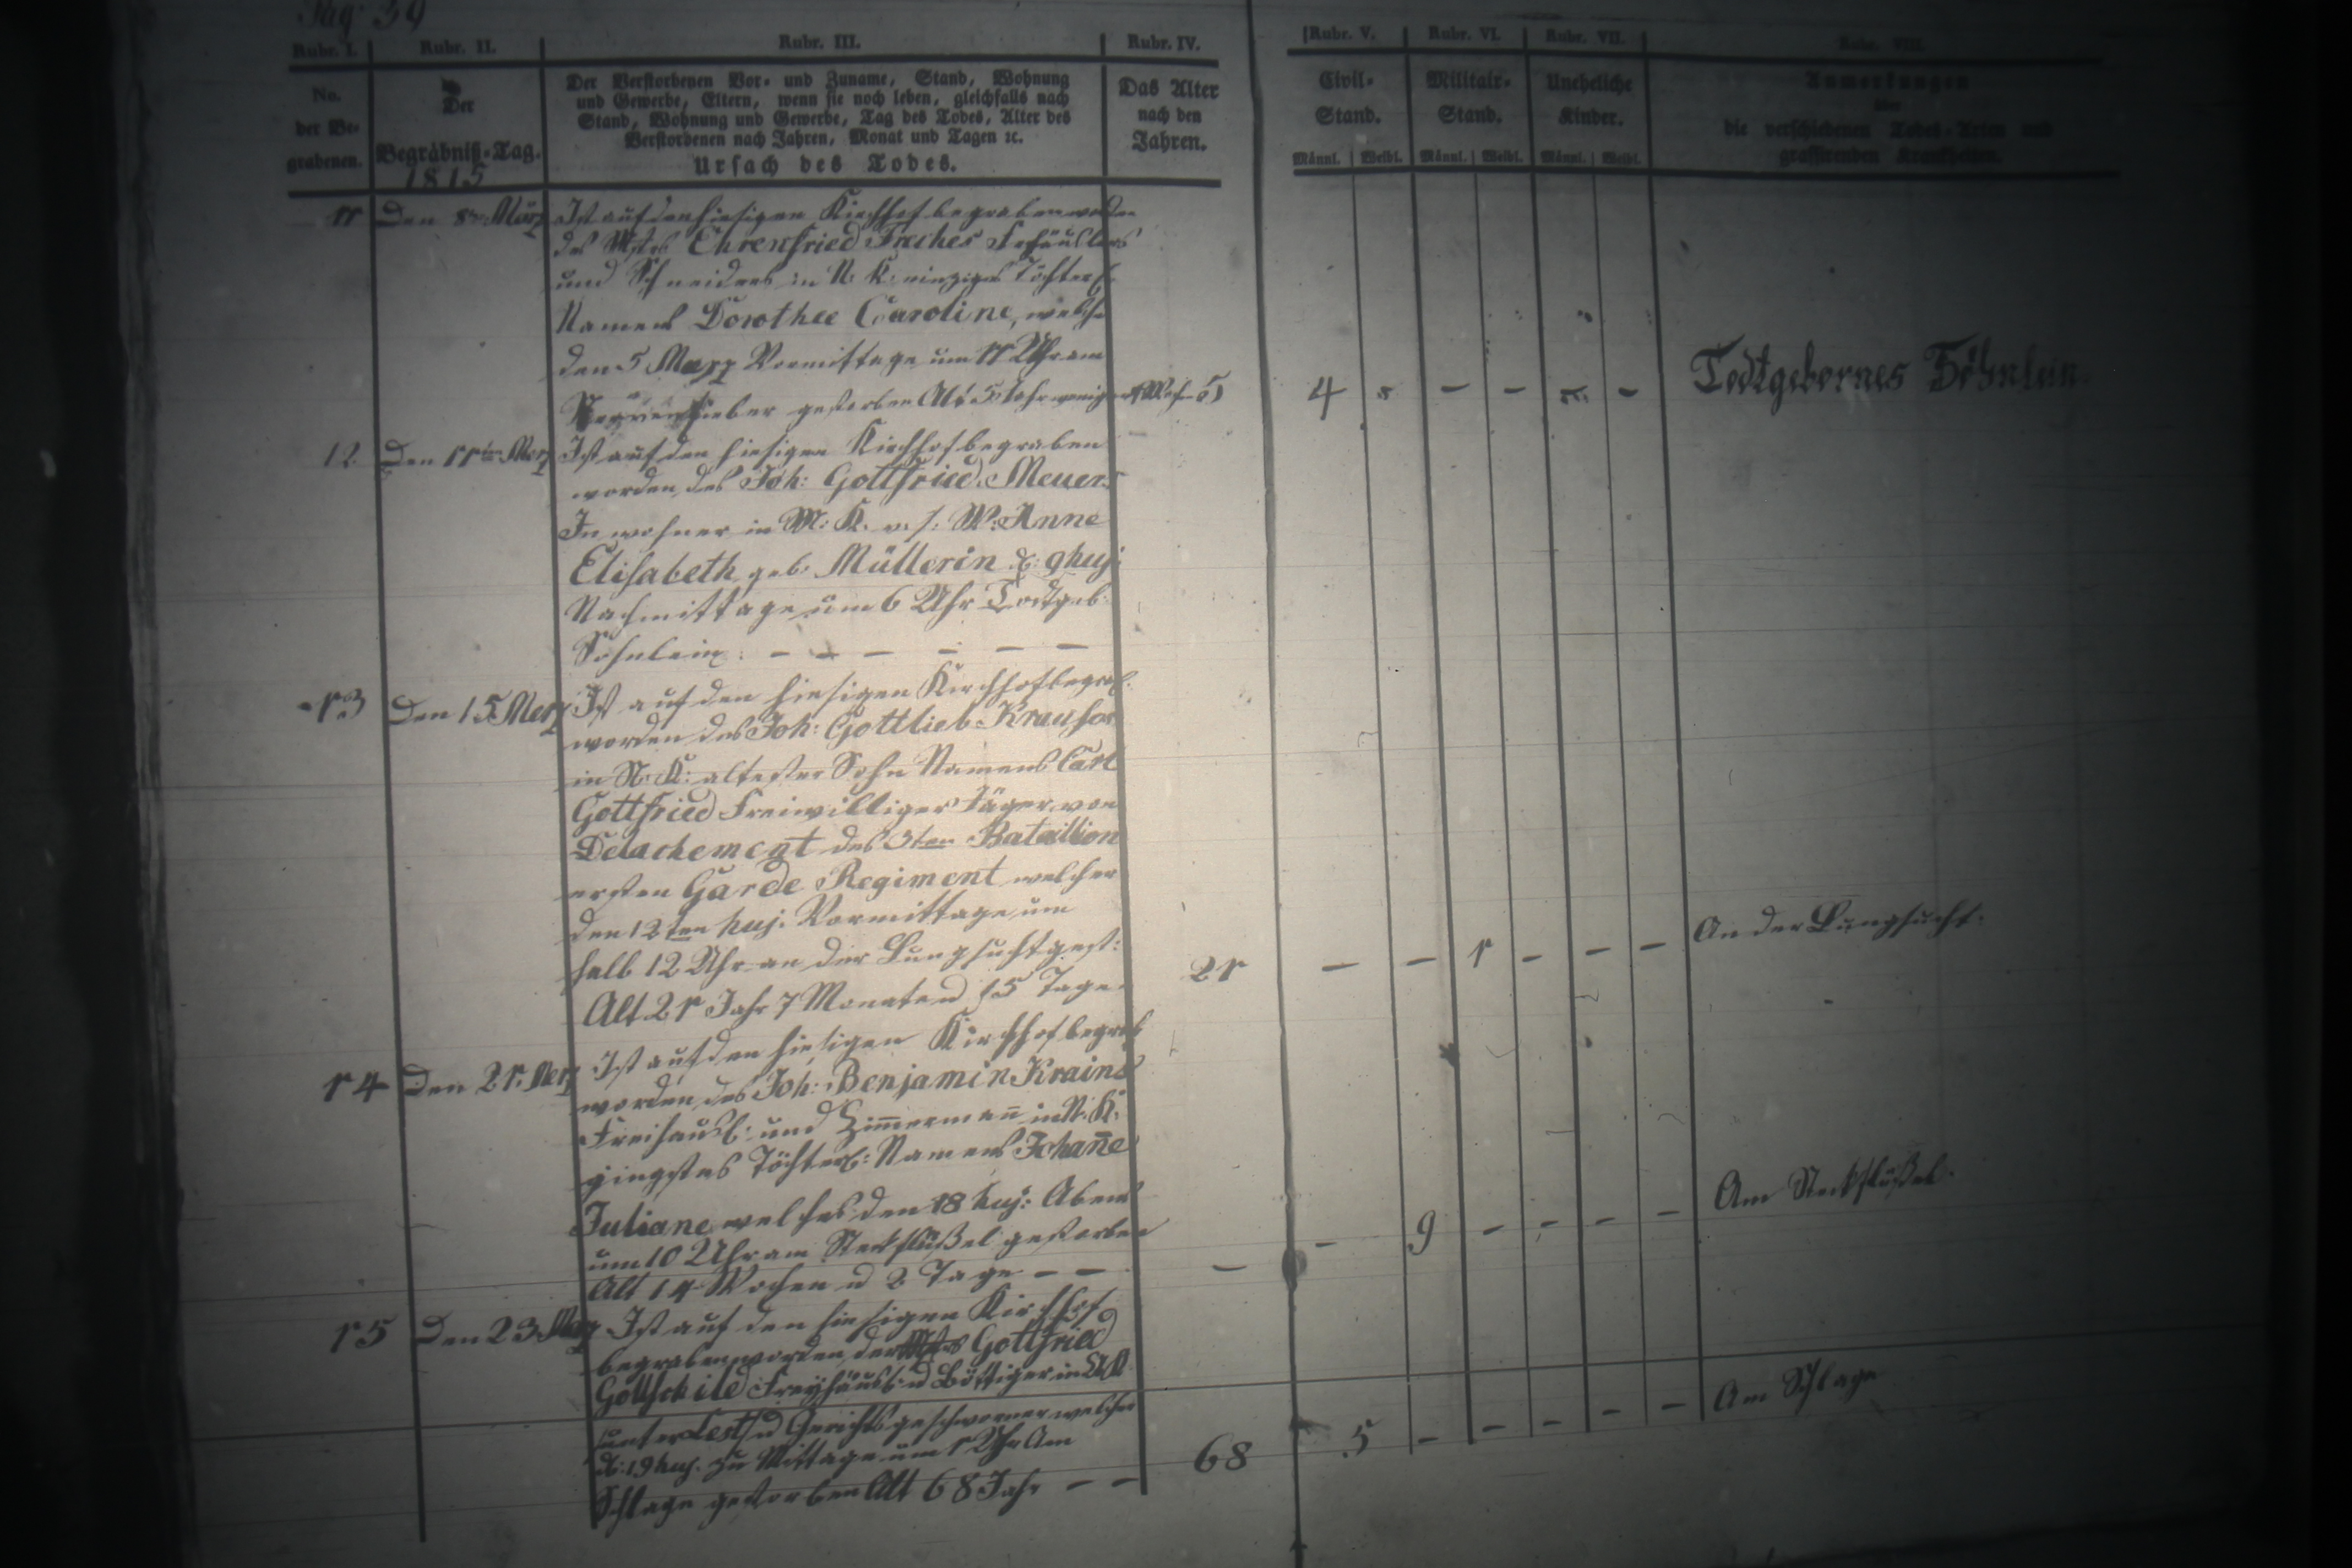 Pag. 39
Rubr. I. Rubr. II. Rubr. III. Rubr. IV. Rubr. V. Rubr. VI. Rubr. VII. Rubr. VIII.
No. der Be-grabenen.
Der Begräbniß-Tag.
1815
Der Verstorbenen Vor- und Zuname, Stand, Wohnung
und Gewerbe, Eltern, wenn sie noch leben, gleichfalls nach
Stand, Wohnung und Gewerbe, Tag des Todes, Alter des
Verstorbenen nach Jahren, Monat und Tagen ꝛc.
Ursach des Todes.
Das Alter
nach den
Jahren.
Civil-
Stand.
Männl. Weibl.
Militair-
Stand.
Männl. Weibl.
Uneheliche
Kinder.
Männl. Weibl.
Anmerkungen
über
die verschiedenen Todes-Arten und
grassirenden Krankheiten.
11 Den 8ten März Ist auf den hiesigen Kirchhof begraben worden
des Mstrs Ehrenfried
und Schneiders in N: K: einziges Töchterl.
Namens Dorothee Caroline, welche
den 5 Merz Vormittage um 11 Uhr am
gestorben Alt 5 Jahr weniger
12 Den 11ten Merz Ist auf den hiesigen Kirchhof begraben
worden, des Joh: Gottfried Meuers
Inwohner in M: K. u. s. W: Anne
Elisabeth geb. Müllerin d: 9 huj:
Nachmittage um 6 Uhr Todtgeb:
Söhnlein: – – – – – –
4 – – – – Todtgebornes Söhnlein.
13 Den 15 Merz Ist auf den hiesigen Kirchhof begrab.
worden des Joh: Gottlieb
in N: K: altester Sohn Namens Carl
Gottfried Freiwilliger Jäger von
Detachement des 3ten Bataillion
ersten Garde Regiment welcher
den 12ten huj. Vormittage um
halb 12 Uhr an der Lungsucht gest:
Alt 21 Jahr 7 Monate u 15 Tage.
21 – – 1 – – – An der Lungsucht.
14 Den 21. Merz Ist auf den hiesigen Kirchhof begrab
worden, des Joh: Benjamin Krains
Freihäusl: und Zim̄erman̄ in N: K:
jingstes Töchterl: Namens Johan̄e
Juliane welches den 18 huj: Abens
um 10 Uhr am Steckflüßel gestorben
Alt 14 Wochen u 2 Tage – –
– – 9 – – – – Am Steckflüßel.
15 Den 23 Merz Ist auf den hiesigen Kirchhof
begraben worden der Gottfried
Gottschild Freyhäusl: u Böttiger in
Gerichtsgeschworner welcher
d: 19 huj. zu Mittage um 1 Uhr Am
Schlage gestorben Alt 68 Jahr – –
68 5 – – – – – Am Schlage